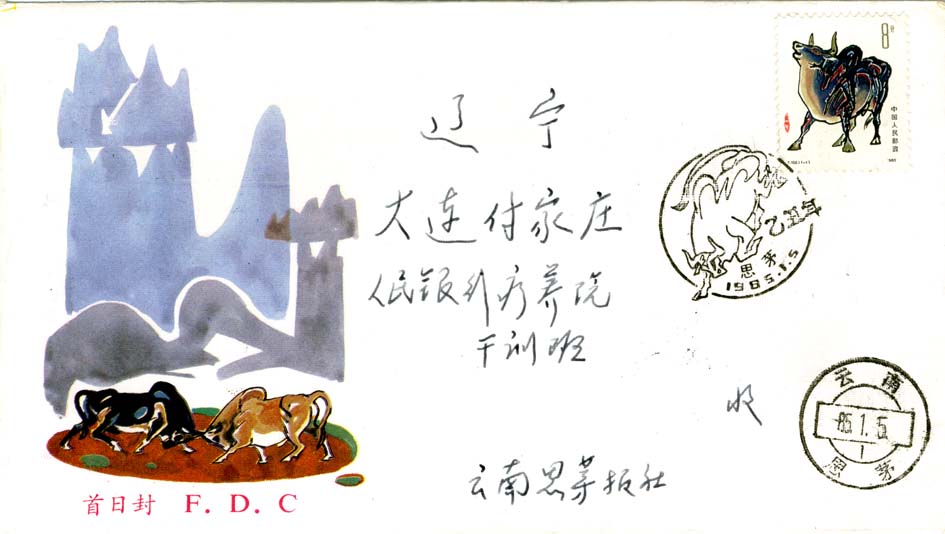 8分
中国人民邮政
辽宁
乙丑年
思茅
1985.1.5
大连付家庄
人民银行疗养院
干训班
收
云南
85.1.5
1
思茅
云南思茅报社
首日封 F. D. C